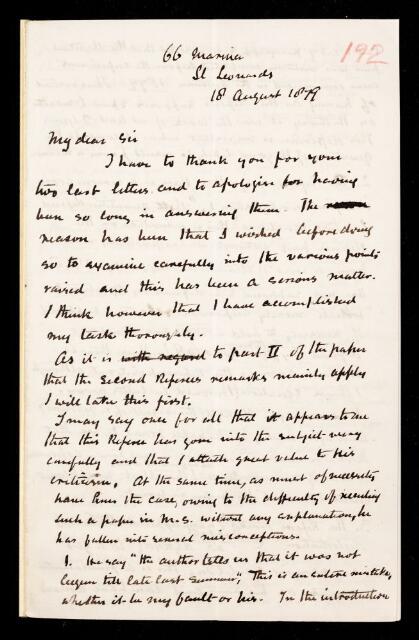 192
66 Marina
St Leonards
18 August 1879
My dear Sir
I have to thank you for your
two last letters and to apologise for having
been so long in answering them. The reason
reason has been that I wished before doing
so to examine carefully into the various points
raised and this has been a serious matter.
I think however that I have accomplished
my task thoroughly.
As it is with regard to part II of the paper
that the second Referees remarks mainly apply
I will take this first.
I may say once for all that it appears to me
that this Referee has gone into the subject very
carefully and that I attach great value to his
criticism. At the same time, as must of necessity
have been the case, owing to the difficulty of reading
such a paper in M.S. without any explanation, he
has fallen into several misconceptions.
1. He says "the author tells us that it was not
begun till late last summer", This is an entire mistake,
whether it be my fault or his. In the introduction